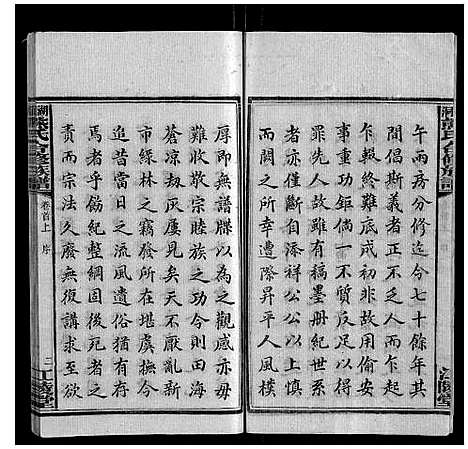 午兩房分修迄今七十餘年其
間倡斯義者正不乏人而乍起
乍輟終難底成初非故用偷安
事重功鉅倘一不質反足以得
罪先人故雖有稿墨册紀世系
之亦僅斷自添祥公公以上慎
而闕之所幸遭際昇平人風樸
厚即無譜牒以為之觀感亦毋
難收敬宗睦族之功今則田海
蒼凉劫灰屢見矣天不厭亂新
市綠林之竊發所在堪虞撫今
追昔當日之流風遺俗猶有存
焉者乎飭紀整綱固後死者之
責而坐兹久廢無復講求至欲
氏合修族譜
卷首上 序
二
江陵堂